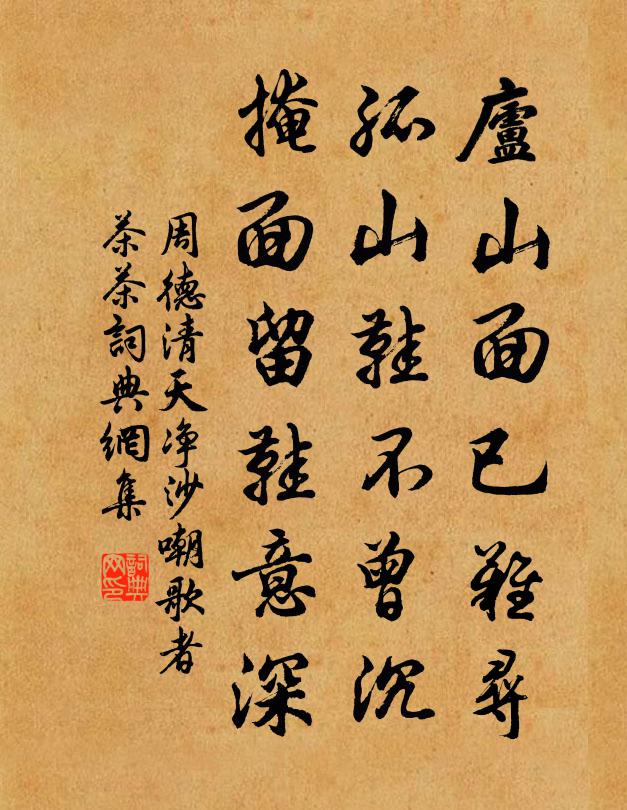 廬山面已難尋
孤山鞋不曾沉
掩面留鞋意深
周德清天净沙嘲歌者
茶茶詞典網集
詞典
网印